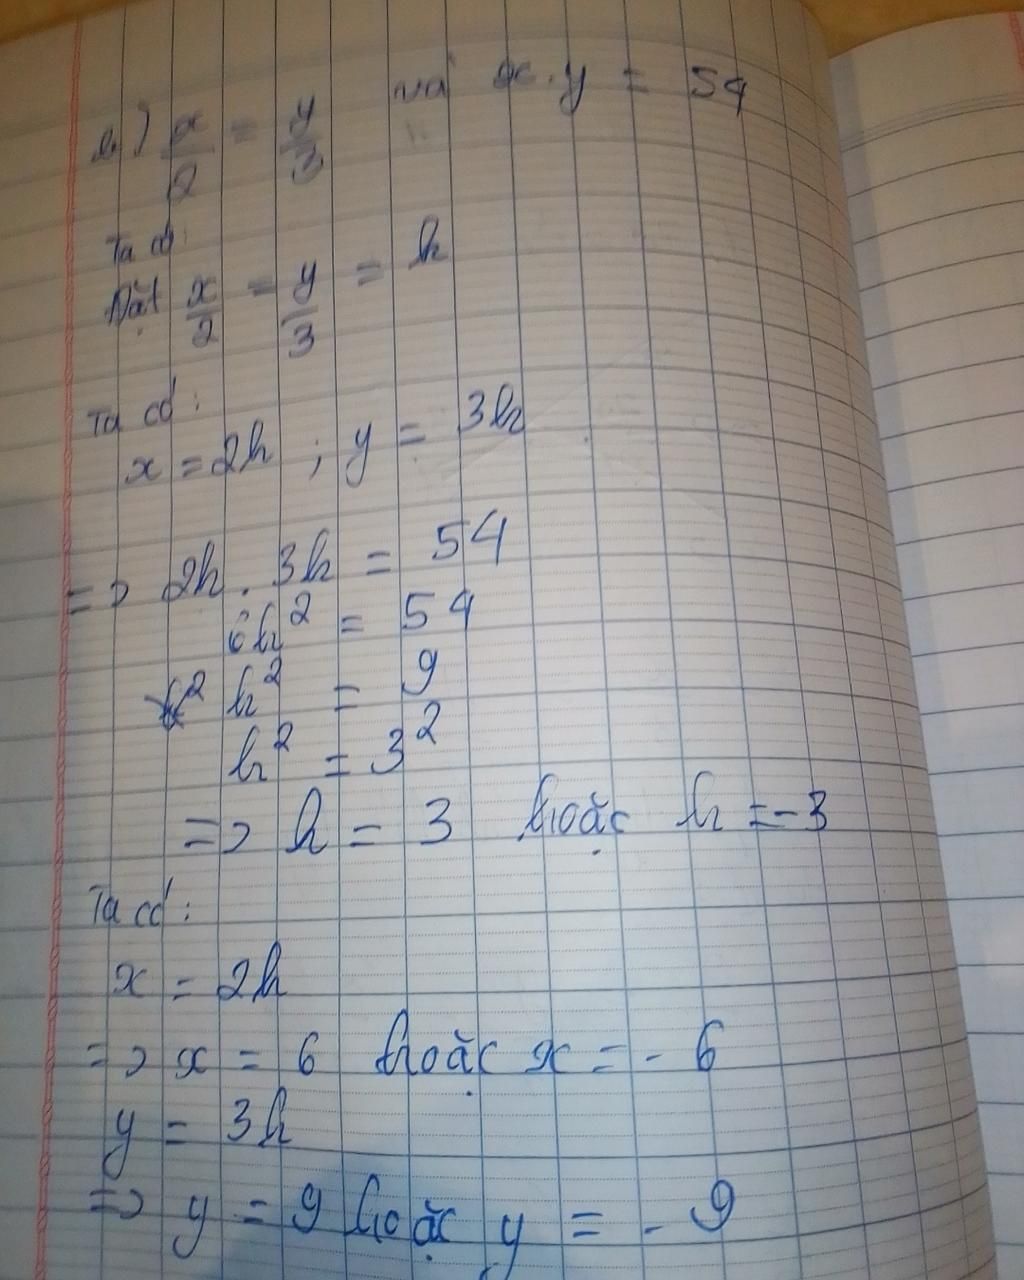 b) x/2 = y/3 và x.y = 54
Ta có:
Đặt x/2 = y/3 = k
Ta có:
x = 2k ; y = 3k
=> 2k . 3k = 54
6k² = 54
k² = 9
k² = 3²
=> k = 3 hoặc k = -3
Ta có:
x = 2k
=> x = 6 hoặc x = - 6
y = 3k
=> y = 9 hoặc y = - 9